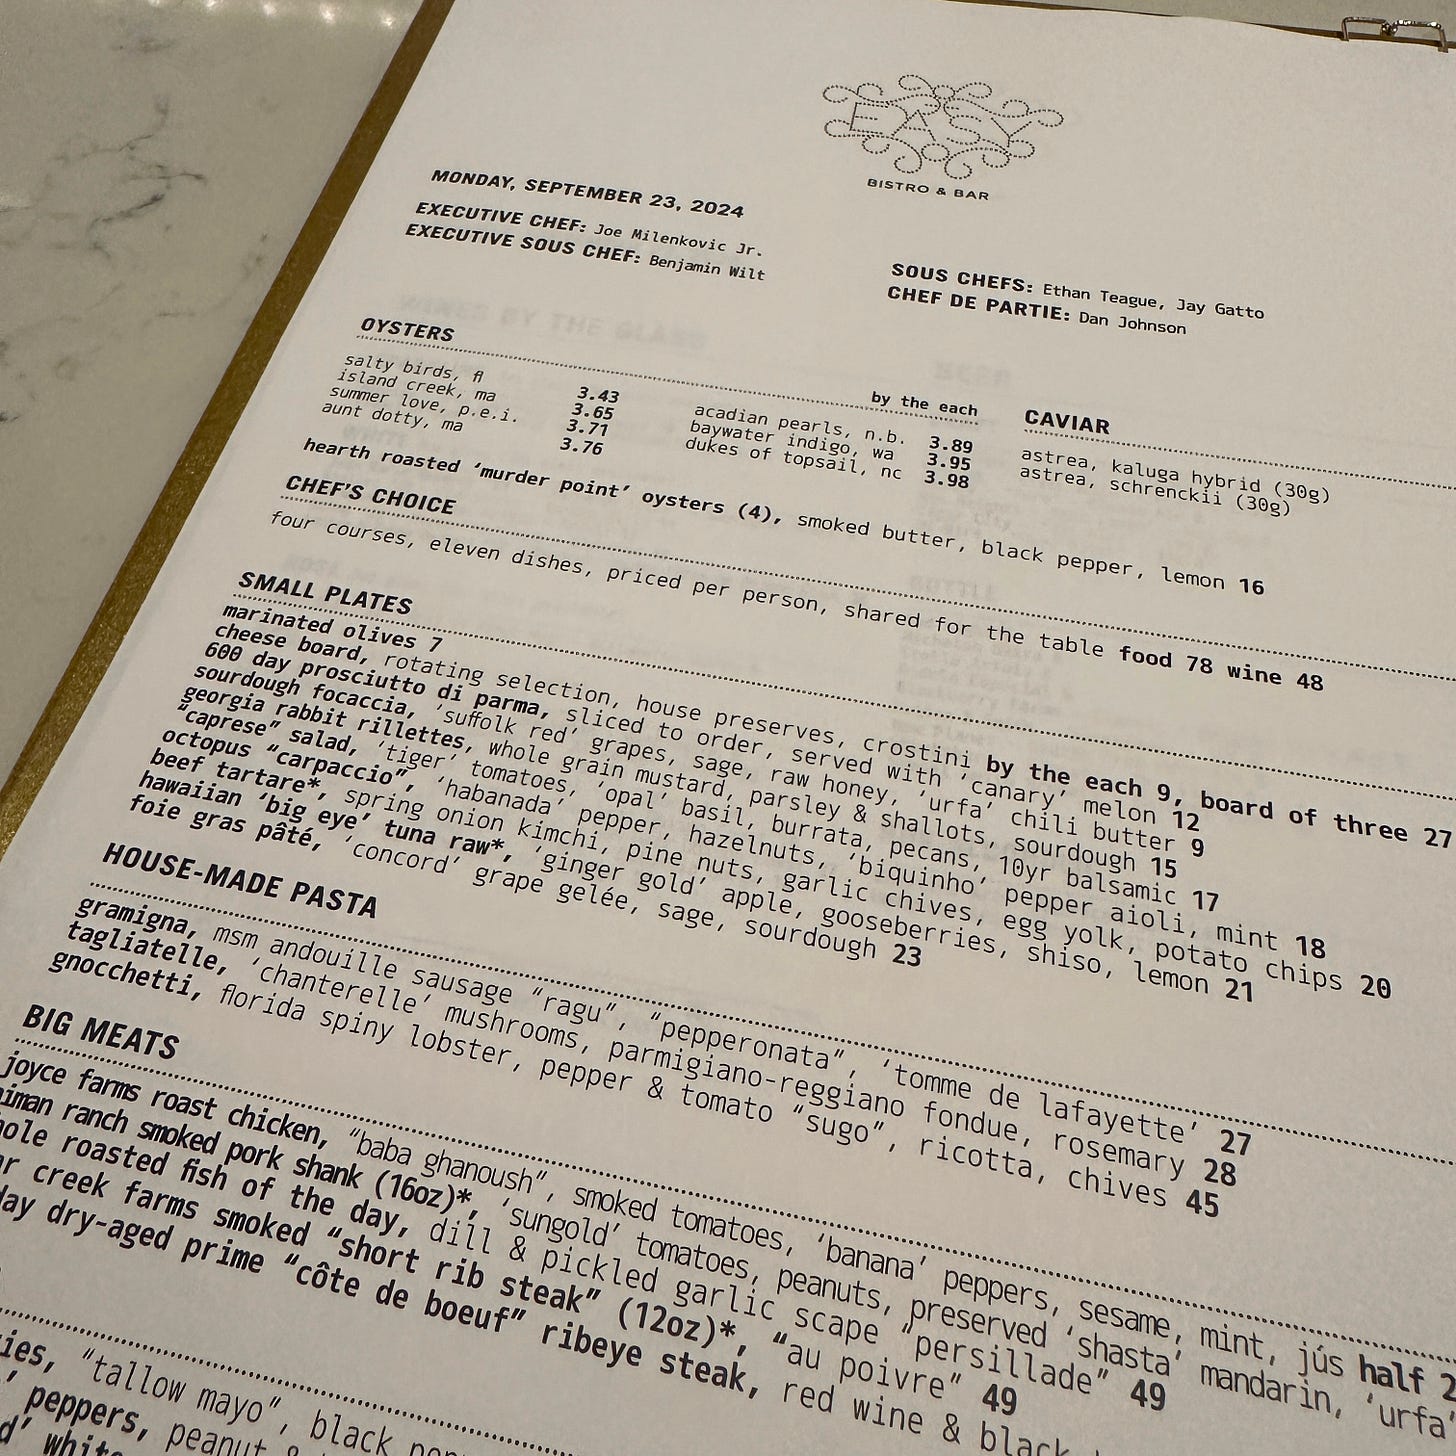 EASY
BISTRO & BAR
MONDAY, SEPTEMBER 23, 2024
EXECUTIVE CHEF: Joe Milenkovic Jr.
EXECUTIVE SOUS CHEF: Benjamin Wilt
SOUS CHEFS: Ethan Teague, Jay Gatto
CHEF DE PARTIE: Dan Johnson
OYSTERS
by the each
salty birds, fl 3.43
island creek, ma 3.65
summer love, p.e.i. 3.71
aunt dotty, ma 3.76
acadian pearls, n.b. 3.89
baywater indigo, wa 3.95
dukes of topsail, nc 3.98
hearth roasted ‘murder point’ oysters (4), smoked butter, black pepper, lemon 16
CAVIAR
astrea, kaluga hybrid (30g)
astrea, schrenckii (30g)
CHEF'S CHOICE
four courses, eleven dishes, priced per person, shared for the table food 78 wine 48
SMALL PLATES
marinated olives 7
cheese board, rotating selection, house preserves, crostini by the each 9, board of three 27
600 day prosciutto di parma, sliced to order, served with ‘canary’ melon 12
sourdough focaccia, ‘suffolk red’ grapes, sage, raw honey, ‘urfa’ chili butter 9
georgia rabbit rillettes, whole grain mustard, parsley & shallots, sourdough 15
“caprese” salad, ‘tiger’ tomatoes, ‘opal’ basil, burrata, pecans, 10yr balsamic 17
octopus “carpaccio”, ‘habanada’ pepper, hazelnuts, ‘biquinho’ pepper aioli, mint 18
beef tartare*, spring onion kimchi, pine nuts, garlic chives, egg yolk, potato chips 20
hawaiian ‘big eye’ tuna raw*, ‘ginger gold’ apple, gooseberries, shiso, lemon 21
foie gras pâté, ‘concord’ grape gelée, sage, sourdough 23
HOUSE-MADE PASTA
gramigna, msm andouille sausage “ragu”, “pepperonata”, ‘tomme de lafayette’ 27
tagliatelle, ‘chanterelle’ mushrooms, parmigiano-reggiano fondue, rosemary 28
gnocchetti, florida spiny lobster, pepper & tomato “sugo”, ricotta, chives 45
BIG MEATS
joyce farms roast chicken, “baba ghanoush”, smoked tomatoes, ‘banana’ peppers, sesame, mint, jús half 2
ranch smoked pork shank (16oz)*, ‘sungold’ tomatoes, peanuts, preserved ‘shasta’ mandarin, ‘urfa’
roasted fish of the day, dill & pickled garlic scape “persillade” 49
creek farms smoked “short rib steak” (12oz)*, “au poivre” 49
day dry-aged prime “côte de boeuf” ribeye steak, red wine & black
“tallow mayo”, black
peppers, peanut